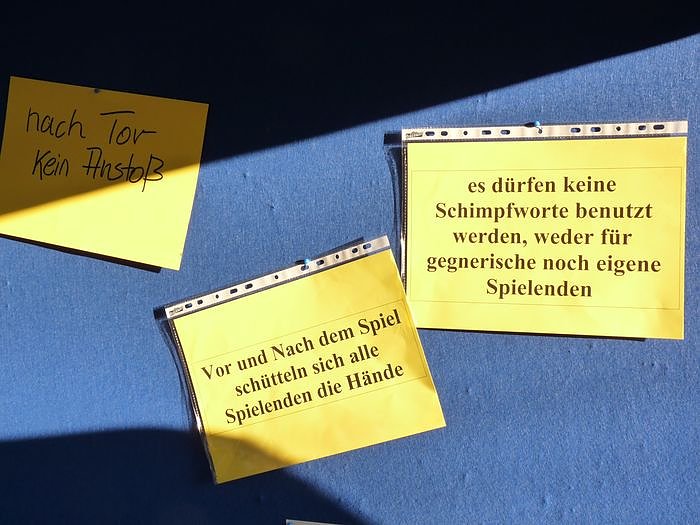 nach Tor
kein Anstoß
es dürfen keine
Schimpfworte benutzt
werden, weder für
gegnerische noch eigene
Spielenden
Vor und Nach dem Spiel
schütteln sich alle
Spielenden die Hände